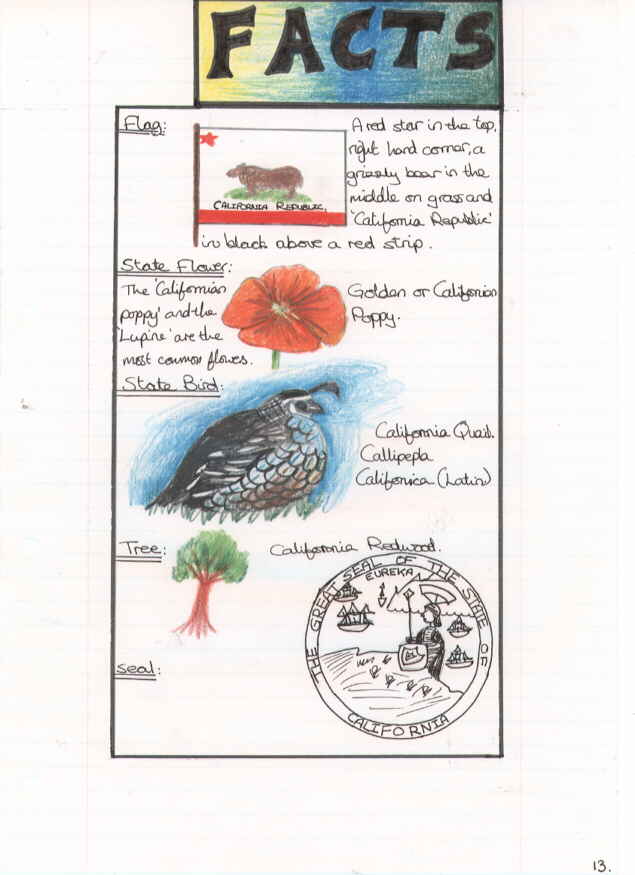 FACTS
Flag:
A red star in the top,
right hand corner, a
grizzly bear in the
middle on grass and
'California Republic'
CALIFORNIA REPUBLIC.
in black above a red strip.
State Flower:
The 'Californian
poppy' and the
'Lupine' are the
most common flowes.
Golden or Californian
Poppy.
State Bird:
California Quail.
Callipepla
Californica (Latin)
Tree:
California Redwood.
seal:
THE GREAT SEAL OF THE STATE OF
EUREKA
CALIFORNIA
13.